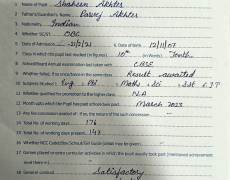 Name of Pupil Shaheen Akhter
Father's/Guardian's Name Parvej Akhter
Nationality Indian
Whether SC/ST OBC
Date of Admission 2/2/21 6. Date of Birth 12/11/07
Class in which the pupil last studied (in figures) 10th (in Words) Tenth
School/Board Annual examination last taken with CBSE
Whether failed, if so once/twice in the same class Result awaited
Subjects Studied Eng Maths Sci Sst
Whether qualified for promotion to the higher class N.A
Month upto which the Pupil has paid school dues March 2023
Any fee concession availed of : If yes, the nature of such concession
Total No. of working days 176
Total No. of working days present
Whether NCC Cadet/Boy Scout/Girl Guide (details may be given)
Games played or extra curricular activities in which the pupil usually took part (mentioned achievement
level there in)
General conduct Satisfactory